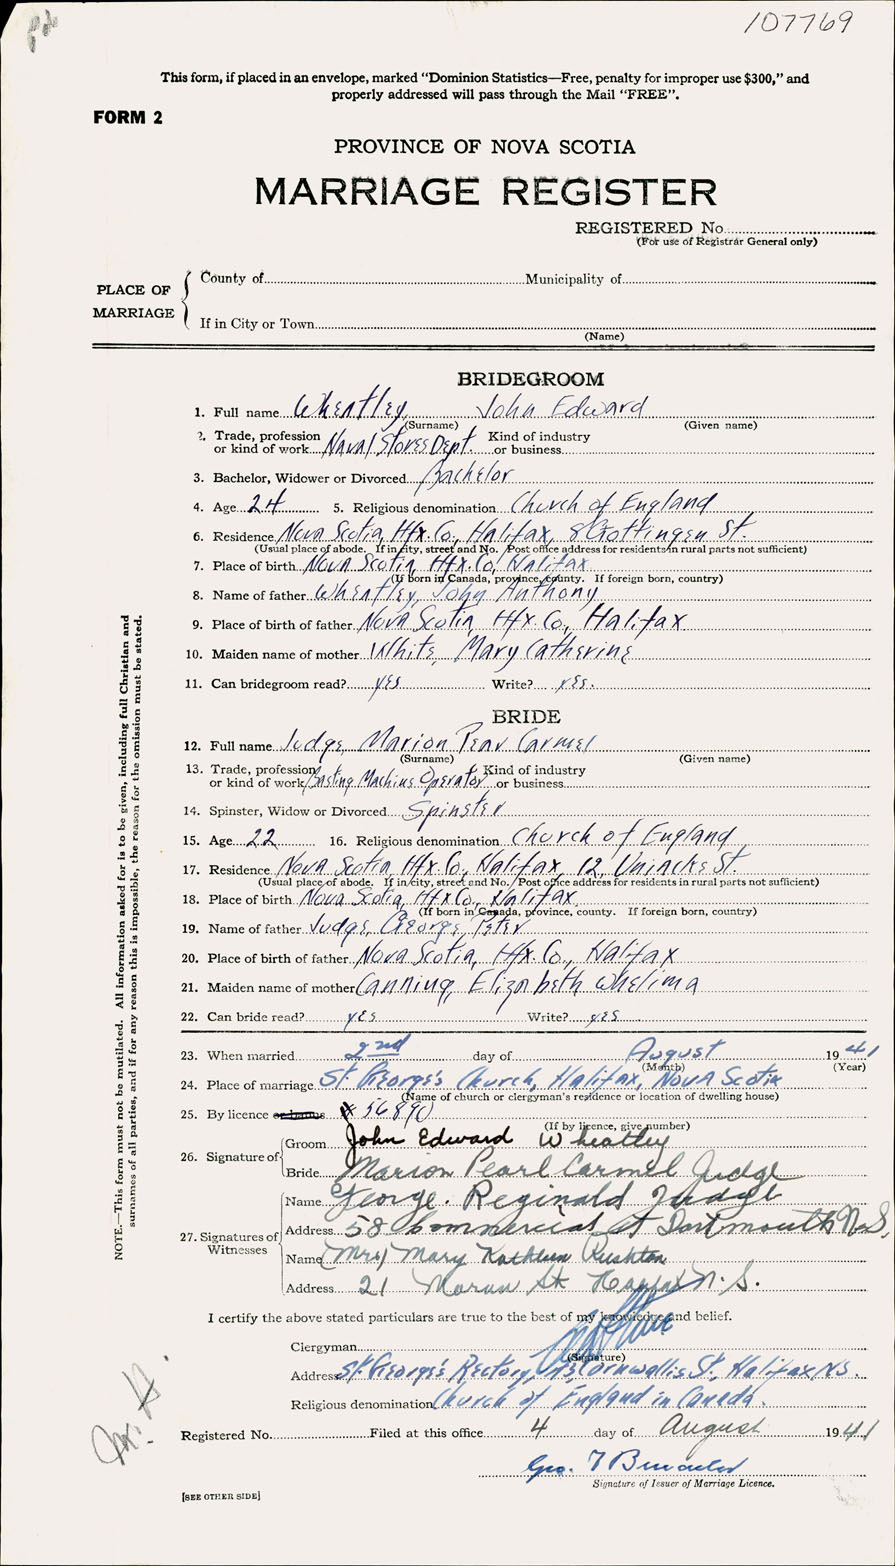 107769
This form, if placed in an envelope, marked “Dominion Statistics—Free, penalty for improper use $300,” and
properly addressed will pass through the Mail “FREE”.
FORM 2
PROVINCE OF NOVA SCOTIA
MARRIAGE REGISTER
REGISTERED No.
(For use of Registrar General only)
PLACE OF MARRIAGE
County of Municipality of
If in City or Town
(Name)
BRIDEGROOM
1. Full name Wheatley, John Edward
(Surname) (Given name)
2. Trade, profession or kind of work Naval Stores Dept. Kind of industry or business
3. Bachelor, Widower or Divorced Bachelor
4. Age 24 5. Religious denomination Church of England
6. Residence Nova Scotia, Hfx. Co., Halifax, Gottingen St.
(Usual place of abode. If in city, street and No. Post office address for residents in rural parts not sufficient)
7. Place of birth Nova Scotia Hfx. Co, Halifax
(If born in Canada, province, county. If foreign born, country)
8. Name of father Wheatley, John Anthony
9. Place of birth of father Nova Scotia, Hfx. Co., Halifax
10. Maiden name of mother White, Mary Catherine
11. Can bridegroom read? yes Write? yes.
BRIDE
12. Full name Judge, Marion Pearl Carmel
(Surname) (Given name)
13. Trade, profession or kind of work Basting Machine Operator Kind of industry or business
14. Spinster, Widow or Divorced Spinster
15. Age 22 16. Religious denomination Church of England
17. Residence Nova Scotia, Hfx. Co., Halifax, 12, Uniacke St.
(Usual place of abode. If in city, street and No. Post office address for residents in rural parts not sufficient)
18. Place of birth Nova Scotia, Hfx Co., Halifax
(If born in Canada, province, county. If foreign born, country)
19. Name of father Judge, George Peter
20. Place of birth of father Nova Scotia, Hfx. Co., Halifax
21. Maiden name of mother Canning, Elizabeth Whelima
22. Can bride read? yes Write? yes
23. When married 2nd day of August 1941
(Month) (Year)
24. Place of marriage St. George's Church, Halifax, Nova Scotia
(Name of church or clergyman's residence or location of dwelling house)
25. By licence or banns # 56890
(If by licence, give number)
26. Signature of
Groom John Edward Wheatley
Bride Marion Pearl Carmel Judge
27. Signatures of Witnesses
Name George. Reginald Judge
Address 58 Commercial St Dartmouth N.S.
Name (Mrs) Mary Kathleen Rushton
Address 21 Moran St Halifax N.S.
I certify the above stated particulars are true to the best of my knowledge and belief.
Clergyman
(Signature)
Address St. George's Rectory, Cornwallis St., Halifax, N.S.
Religious denomination Church of England in Canada.
Registered No. Filed at this office 4 day of August 1941
Geo.
Signature of Issuer of Marriage Licence.
[SEE OTHER SIDE]
NOTE.—This form must not be mutilated. All information asked for is to be given, including full Christian and
surnames of all parties, and if for any reason this is impossible, the reason for the omission must be stated.